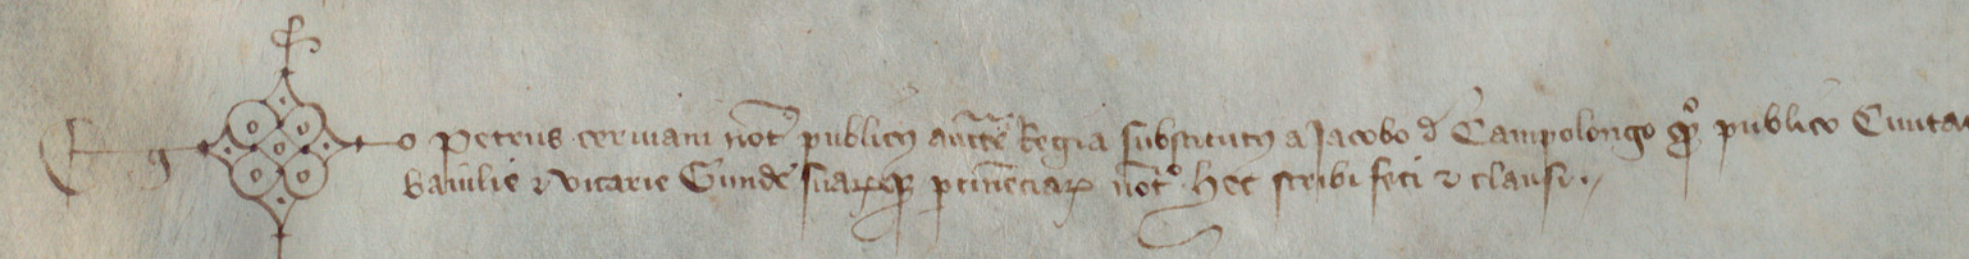 Eg o Petrus cerviani not publicus aucte Regia substitutus a Jacobo d Campolongo qo publico Civita
baiulie et vicarie Gunde suarqz ptinenciar noto hec scribi feci et clausi